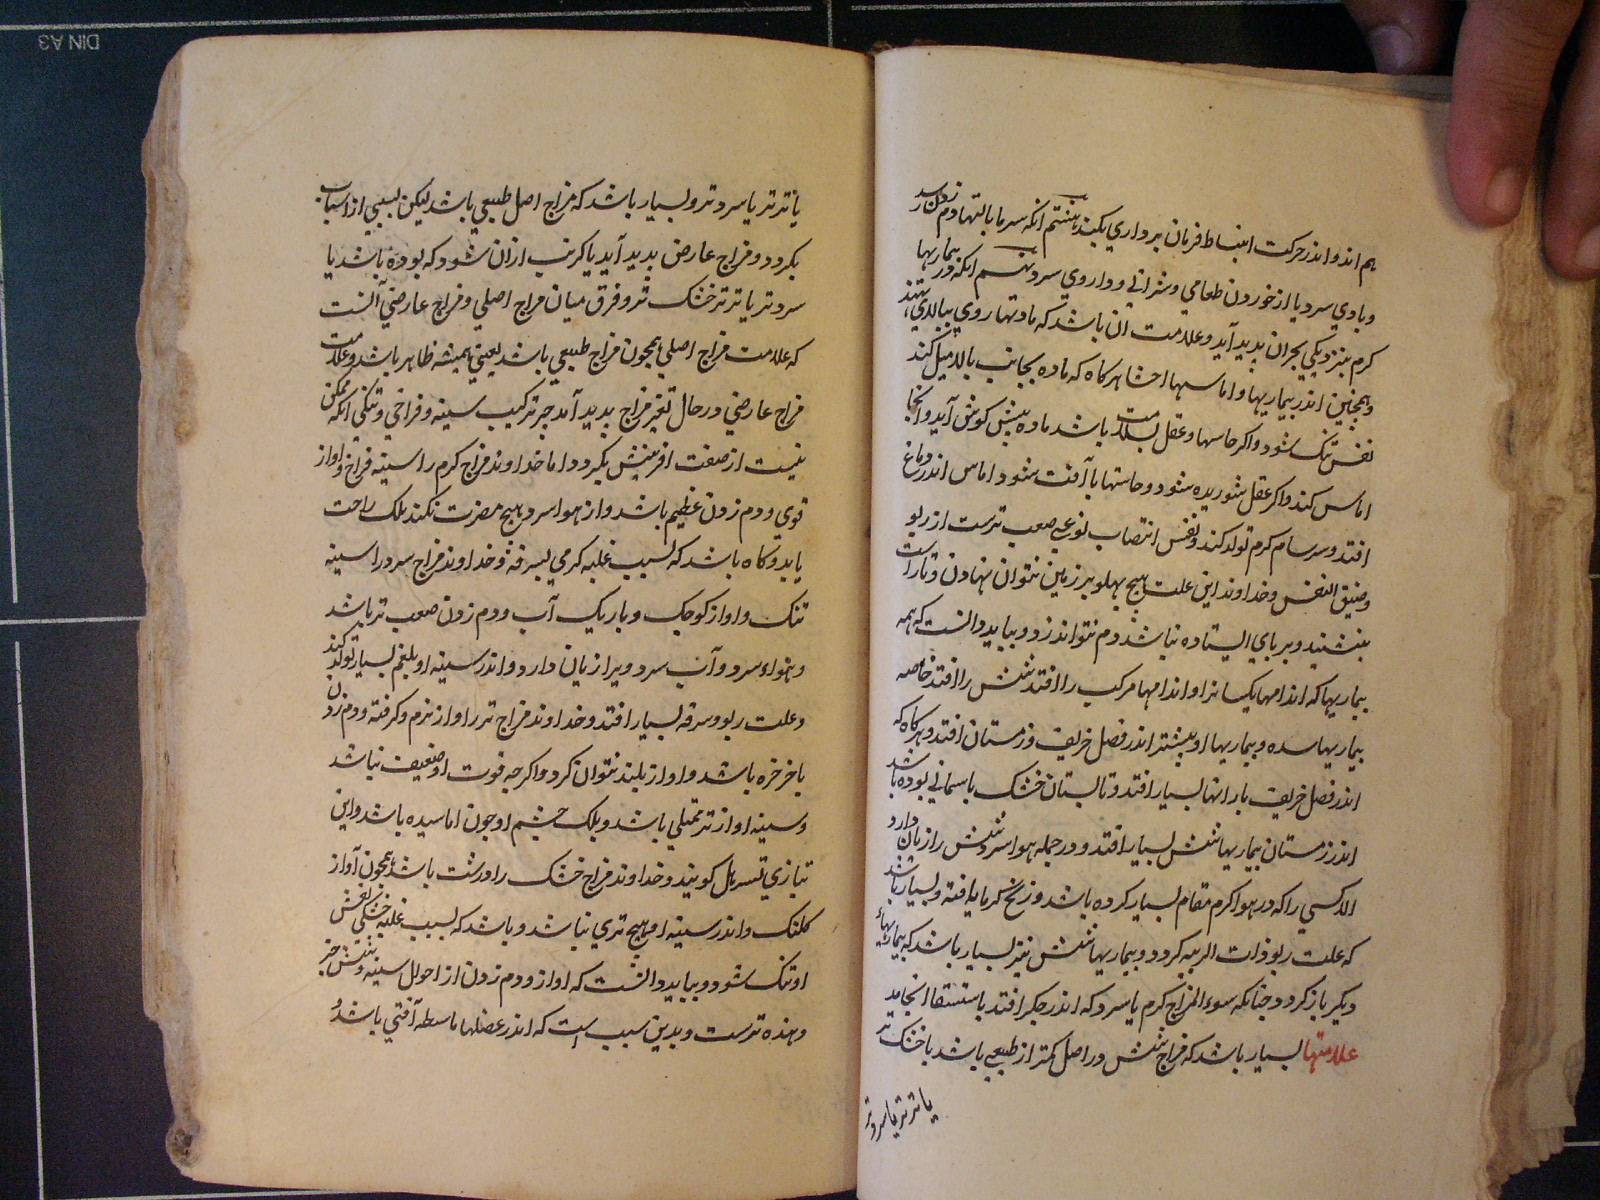 هم اند و اندر حرکت انبساط فرمان برداری نکند هشتم انکه سرما بالتهاء دم زدن رسد
و بادی سرد یا از خوردن طعامی و شرابی و داروی سرد نهم انکه در بیماریها
کرم بنزدیکی بحران بدید آید و علامت ان باشد که ماده تنها روی ببالا نهند
و همچنین اندر بیماریها و اماسهاء احشا هرکاه که ماده بجانب بالا میل کند
نفس تنک شود و اکر حاسها و عقل بسلامت باشد ماده ببیش کوش آید و انجا
اماس کند و اکر عقل شوریده شود و حاستها با آفت شود اماس اندر دماغ
افتد و سرسام کرم تولد کند و نفس انتصاب نوعی صعب ترست از ربو
و ضیق النفس و خداوند این علت هیچ پهلو بر زمین نتوان نهادن و تا راست
بننشیند و بر پای ایستاده نباشد دم نتواند زد و بباید دانست که همه
بیماریها که اندامهاء یکسانرا و اندامهاء مرکب را افتد شش را افتد خاصه
بیماریهاء سده و بیماریهاء او بیشتر اندر فصل خریف و زمستان افتد و هرکاه که
اندر فصل خریف بارانها بسیار افتد و تابستان خشک با سمائی بوده باشد
اندر زمستان بیماریهاء شش بسیار افتد و در جمله هواء سرد شش را زیان دارد
الا کسی را که در هواء کرم مقام بسیار کرده باشد و رنج کرما یافته و بسیار باشد
که علت ربو ذات الریه کردد و بیماریهاء شش نیز بسیار باشد که بیماریهاء
دیکر باز کردد چنانکه سوء المزاج کرم یا سرد که اندر جکر افتد باستسقا انجامد
علامتها بسیار باشد که مزاج شش در اصل کمتر از طبیعی باشد یا خشک تر
یا تر تر یا سرد تر
یا تر تر یا سرد تر و بسیار باشد که مزاج اصل طبیعی باشد لیکن بسببی از اسباب
بکردد و مزاج عارضی بدید آید یا کرمتر ازان شود که بوده باشد یا
سردتر یا تر تر خشک تر و فرق میان مزاج اصلی و مزاج عارضی آنست
که علامت مزاج اصلی همچون مزاج طبیعی باشد یعنی همیشه ظاهر باشد و علامت
مزاج عارضی در حال تغیر مزاج بدید آمد جز ترکیب سینه و فراخی و تنکی انکه ممکن
نیست از صفت افرینش بکردد اما خداوند مزاج کرم را سینه فراخ و اواز
قوی و دم زدن عظیم باشد و از هواء سرد هیچ مضرت نکند بلک راحت
یابد و کاه باشد که بسبب غلبه کرمی بسرفد و خداوند مزاج سرد را سینه
تنک و اواز کوجک و باریک آب و دم زدن صعب تر باشد
و هواء سرد و آب سرد ویرا زیان دارد و اندر سینه او بلغم بسیار تولد کند
و علت ربو و سرفه بسیار افتد و خداوند مزاج تر را اواز نرم و کرفته و دم زدن
با خرخره باشد و اواز بلند نتوان کرد و اکرچه قوت او ضعیف نباشد
و سینه او از تر ممتلی باشد و پلک چشم او چون اماسیده باشد و این
بتازی تسربل کویند و خداوند مزاج خشک را درشت باشد همچون آواز
کلنک و اندر سینه او هیچ تری نباشد و باشد که بسبب غلبه خشکی نفس
او تنک شود و بباید دانست که اواز و دم زدن از احوال سینه و شش خبر
دهنده ترست و بدین سبب است که اندر عضلهاء باسطه آفتی باشد